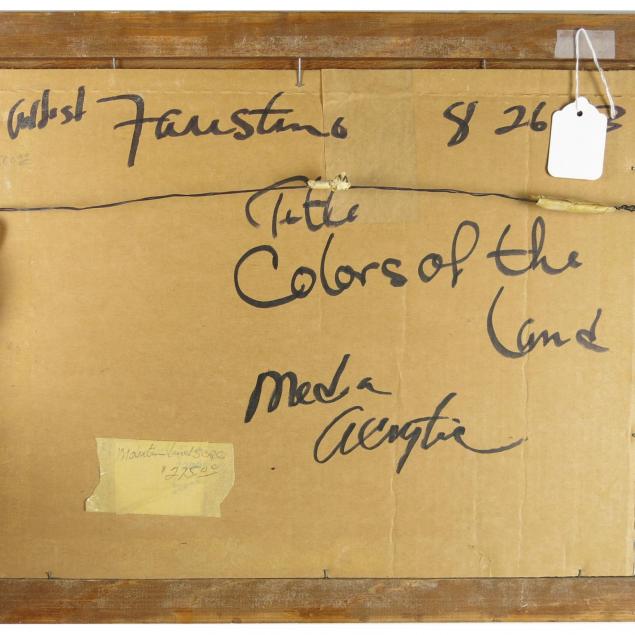 Artist Faustino 8 26 3
Title
Colors of the
Land
Media
Acrylic
Mountain Landscape
$275.00